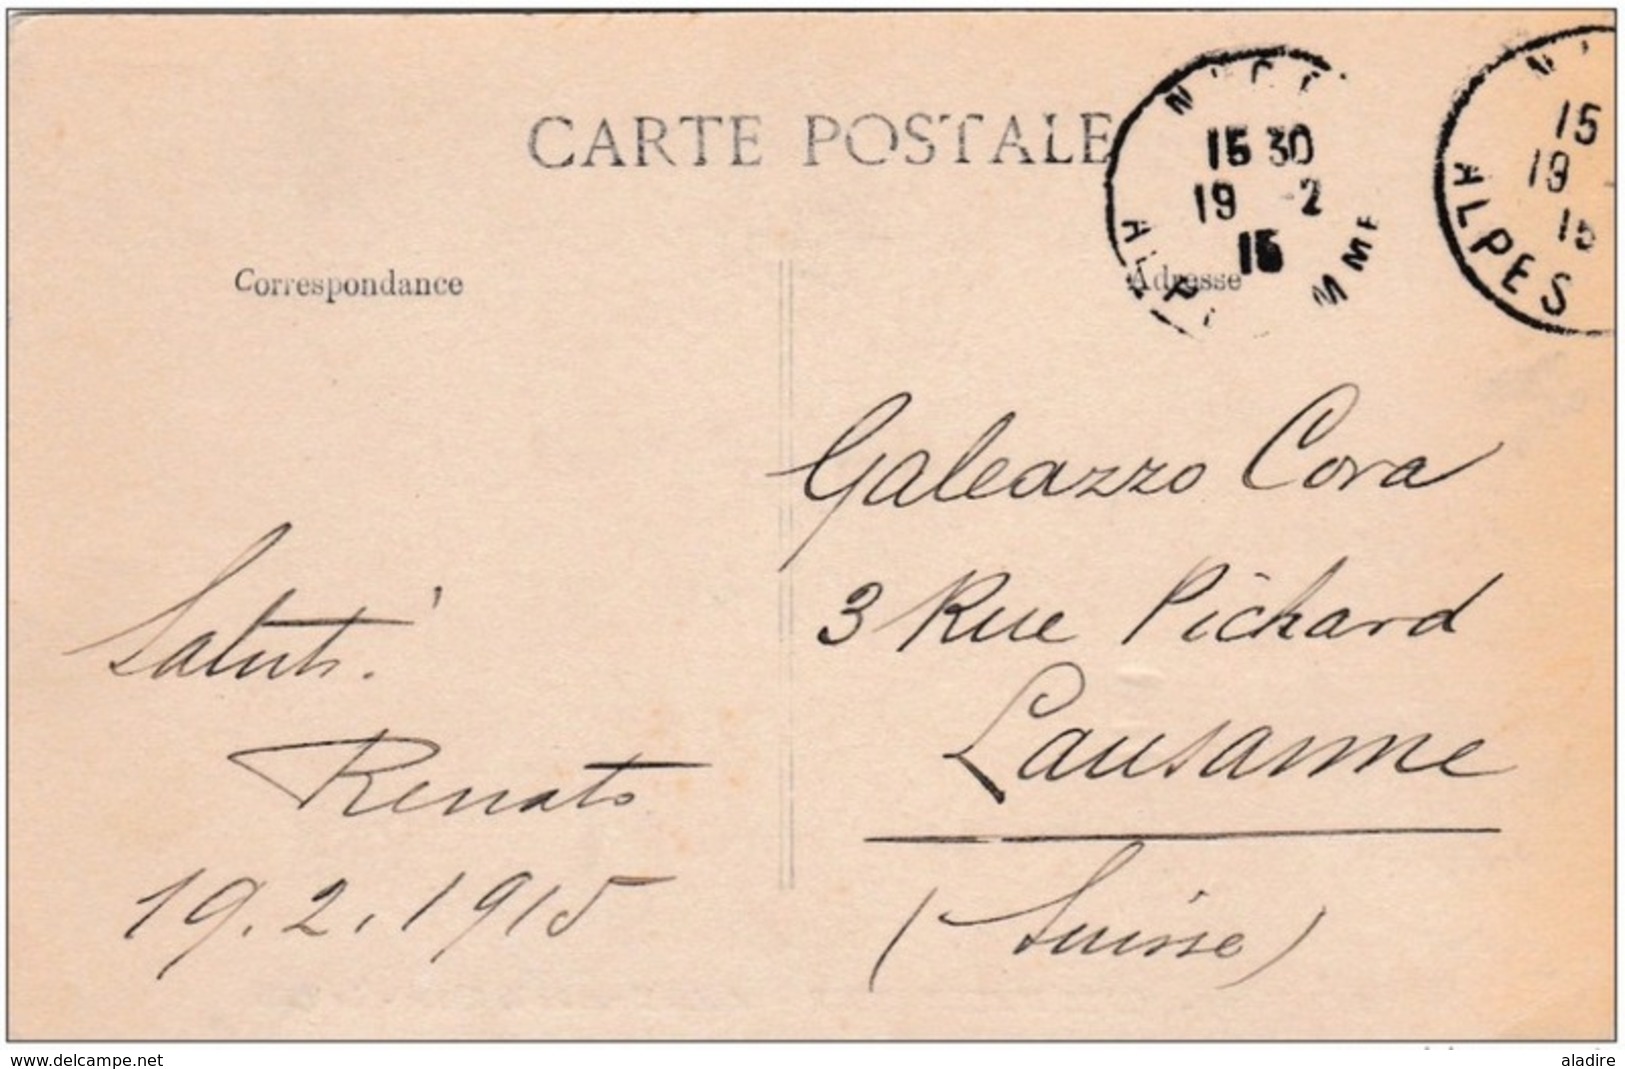 CARTE POSTALE
Correspondance
Adresse
NICE
15 30
19 -2
15
ALP MME
15
19
15
ALPES
Galeazzo Cora
3 Rue Pichard
Lausanne
(Suisse)
Saluti!
Renato
19.2.1915
www.delcampe.net
aladire